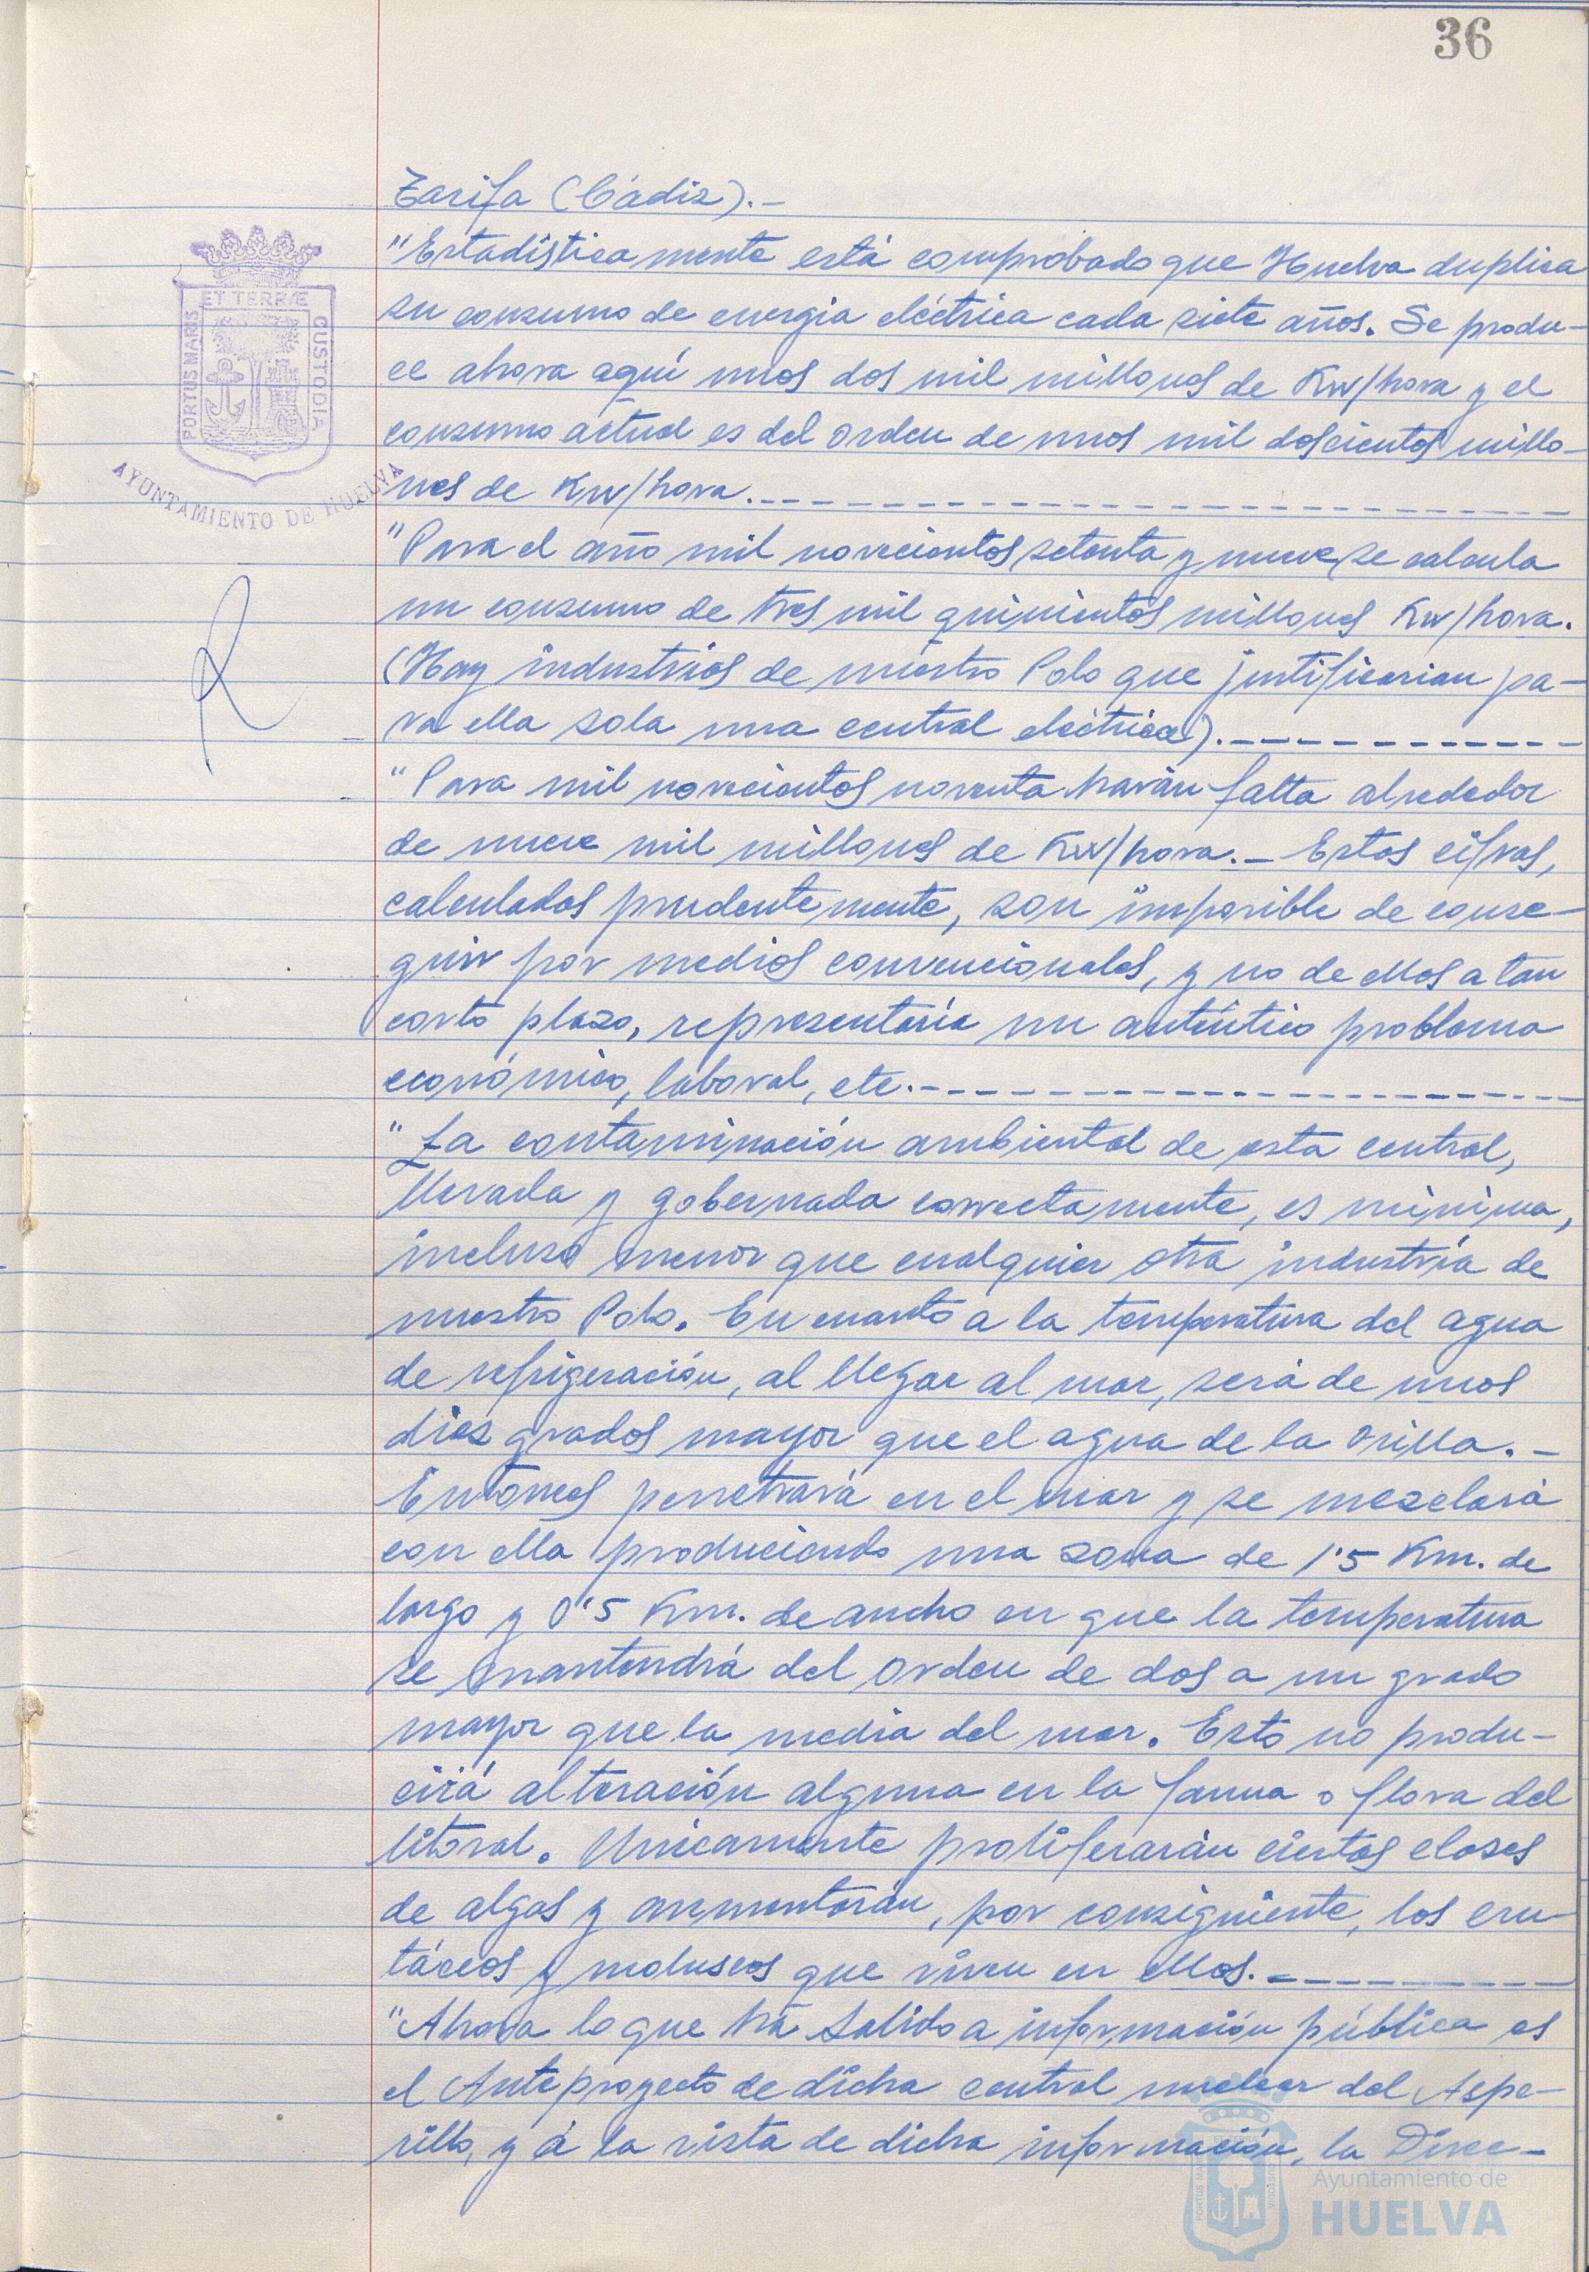 36
Tarifa (Cádiz).-
"Estadísticamente está comprobado que Huelva duplica
su consumo de energia eléctrica cada siete años. Se produ-
ce ahora aquí unos dos mil millones de Kw/hora y el
consumo actual es del orden de unos mil doscientos millo-
nes de Kw/hora.
"Para el año mil novecientos setenta y nueve se calcula
un consumo de tres mil quinientos millones Kw/hora.
(Hay industrias de nuestro Polo que justificarian pa-
ra ella sola una central eléctrica).
"Para mil novecientos noventa harán falta alrededor
de nueve mil millones de Kw/hora.- Estas cifras,
calculadas prudentemente, son imposible de conse-
guir por medios convencionales, y no de ellos a tan
corto plazo, representaría un auténtico problema
económico, laboral, etc.
"La contaminación ambiental de esta central,
llevada y gobernada correctamente, es mínima,
incluso menor que cualquier otra industria de
nuestro Polo. En cuanto a la temperatura del agua
de refrigeración, al llegar al mar, será de unos
diez grados mayor que el agua de la orilla.-
Entonces penetrará en el mar y se mezclará
con ella produciendo una zona de 1'5 Km. de
largo y 0'5 Km. de ancho en que la temperatura
se mantendrá del orden de dos a un grado
mayor que la media del mar. Esto no produ-
cirá alteración alguna en la fauna o flora del
litoral. Unicamente proliferarán ciertas clases
de algas y aumentarán, por consiguiente, los cru-
táceos y moluscos que viven en ellas.
"Ahora lo que ha salido a información pública es
el Anteproyecto de dicha central nuclear del Aspe-
rillo, y á la vista de dicha información, la Direc-
PORTUS MARIS ET TERRÆ CUSTODIA
AYUNTAMIENTO DE HUELVA
Ayuntamiento de
HUELVA